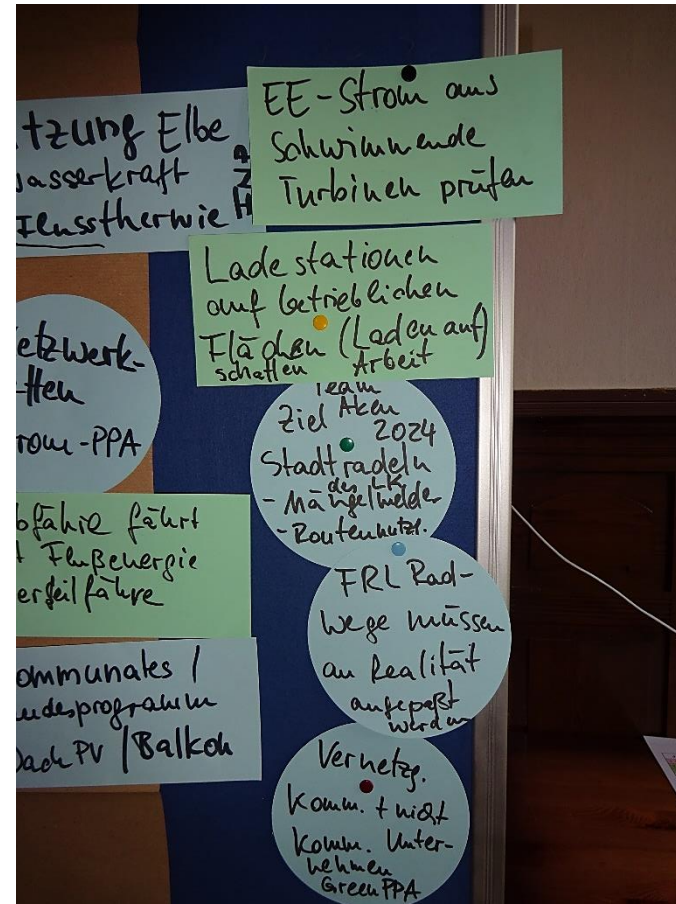 tzung Elbe
asserkraft
Flussthermie
EE-Strom aus
Schwimmende
Turbinen prüfen
Ladestationen
auf betrieblichen
Flächen (Laden auf)
schaffen Arbeit
etzwerk-
tten
rom-PPA
Team
Ziel Aken
2024
Stadtradeln
des LK
- Mängelmelder
- Routennutzg.
fähre fährt
Flußenergie
erseilfähre
FRL Rad-
wege müssen
an Realität
angepaßt
werden
ommunales /
ndesprogramm
Dach PV / Balkon
Vernetzg.
Komm. + nicht
Komm. Unter-
nehmen
GreenPPA